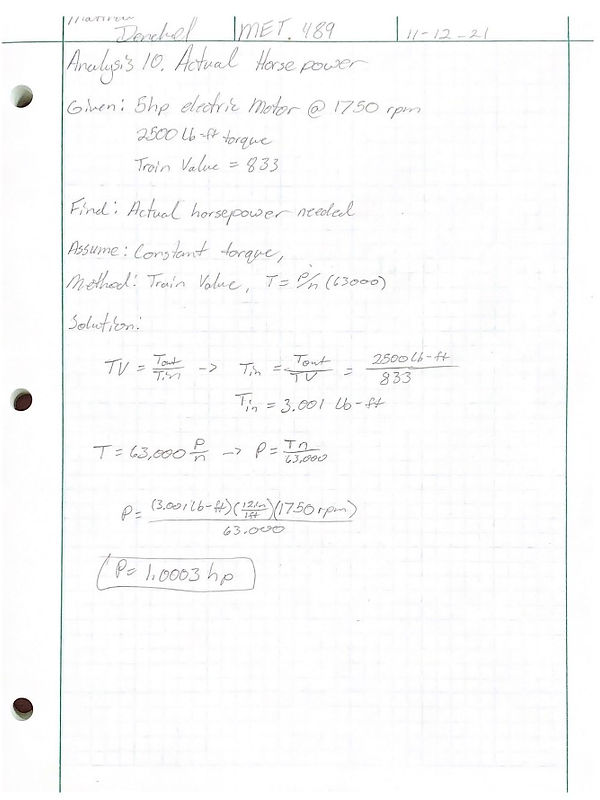 MET. 489
11-12-21
Analysis 10. Actual Horsepower
Given: 5hp electric Motor @ 1750 rpm
2500 lb-ft torque
Train Value = 833
Find: Actual horsepower needed
Assume: Constant torque,
Method: Train Value, T= P/n (63000)
Solution:
TV = Tout/Tin -> Tin = Tout/TV = 2500 lb-ft/833
Tin = 3.001 lb-ft
T = 63,000 P/n -> P = Tn/63,000
P = (3.001 lb-ft)(12in/1ft)(1750 rpm)/63.000
P= 1.0003 hp